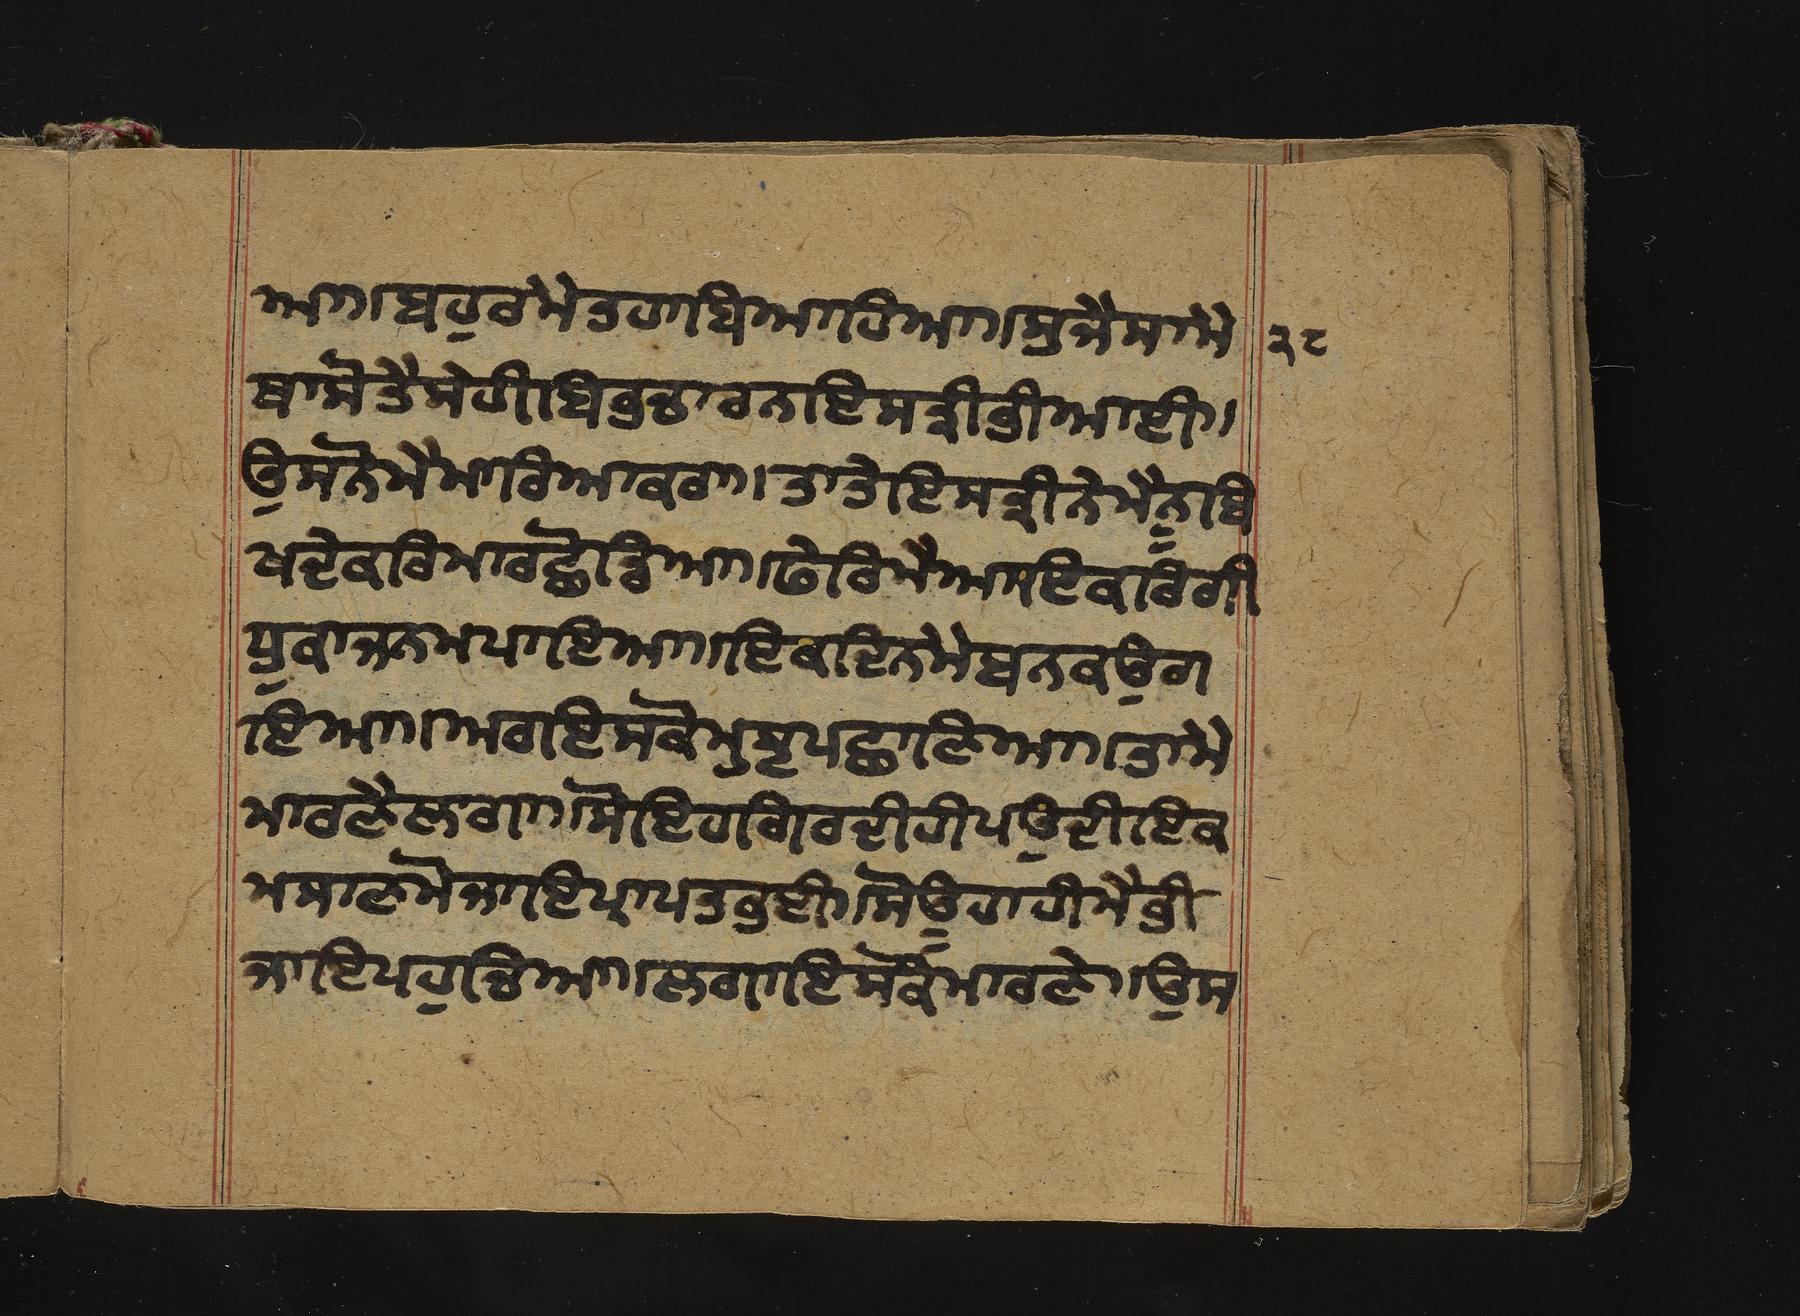 ਆ।ਬਹੁਰਮੈਤਹਾਬਿਆਹਿਆ।ਸੁਜੈਸਾਮੈ ੨੮
ਥਾਸੋਤੈਸੇਹੀਬਿਭੁਚਾਰਨਇਸਤ੍ਰੀਭੀਆਈ।
ਉਸਨੋਮੈਮਾਰਿਆਕਰਾ।ਤਾਤੇਇਸਤ੍ਰੀਨੇਮੈਨੂਬਿ
ਖਦੇਕਰਿਮਾਰਛੋਡਿਆ।ਫੇਰਿਮੈਆਇਕਰਿਗੀ
ਧੁਕਾਜਨਮਪਾਇਆ।ਇਕਦਿਨਮੈਬਨਕਉਗ
ਇਆ।ਅਗਇਸਕੋਮੁਝਪਛਾਣਿਆ।ਤਾਮੈ
ਮਾਰਣੈਲਗਾ।ਸੋਇਹਗਿਰਦੀਹੀਪਉਦੀਇਕ
ਮਸਾਣਮੋਜਾਇਪ੍ਰਾਪਤਭਈ।ਸੋਊਹਾਹੀਮੈਭੀ
ਜਾਇਪਹੁਚਿਆ।ਲਗਾਇਸਕੋਮਾਰਣੇ।ਉਸ